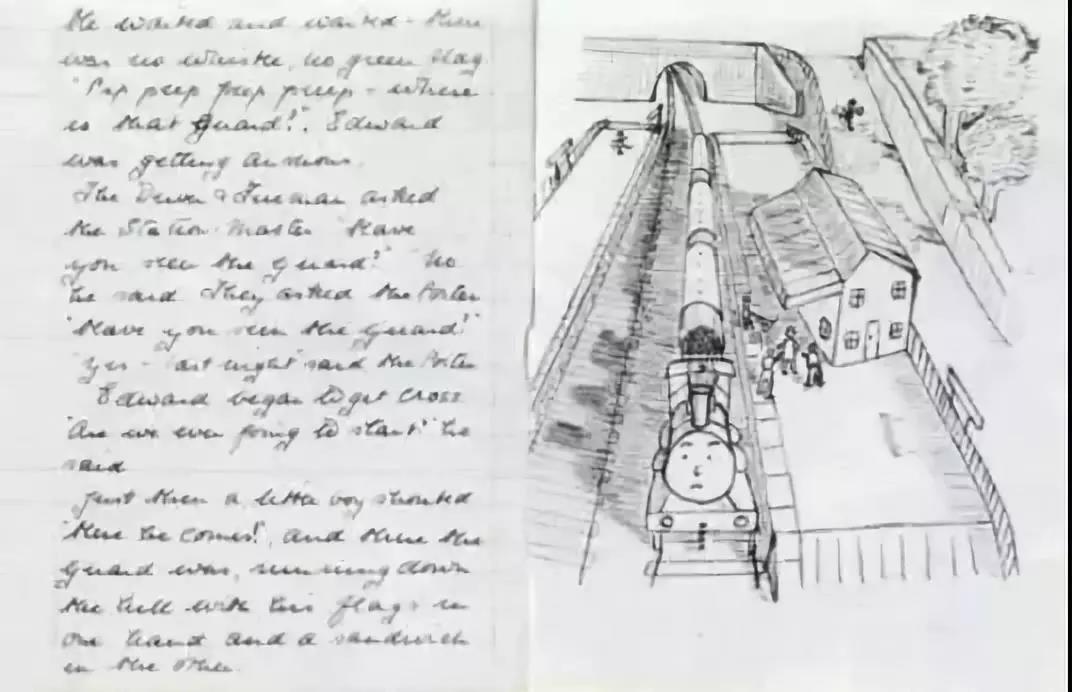 He waited and waited - there
was no whistle, no green flag.
"Pip peep peep peep - where
is that guard?". Edward
was getting anxious.
The Driver & Fireman asked
the Station Master "Have
you seen the guard?" "No"
he said. They asked the Porter
"Have you seen the guard?"
"Yes - last night" said the Porter
Edward began to get cross
"Are we ever going to start?" he
said
Just then a little boy shouted
"Here he comes!", and there the
guard was, running down
the hill with his flags in
one hand and a sandwich
in the other.